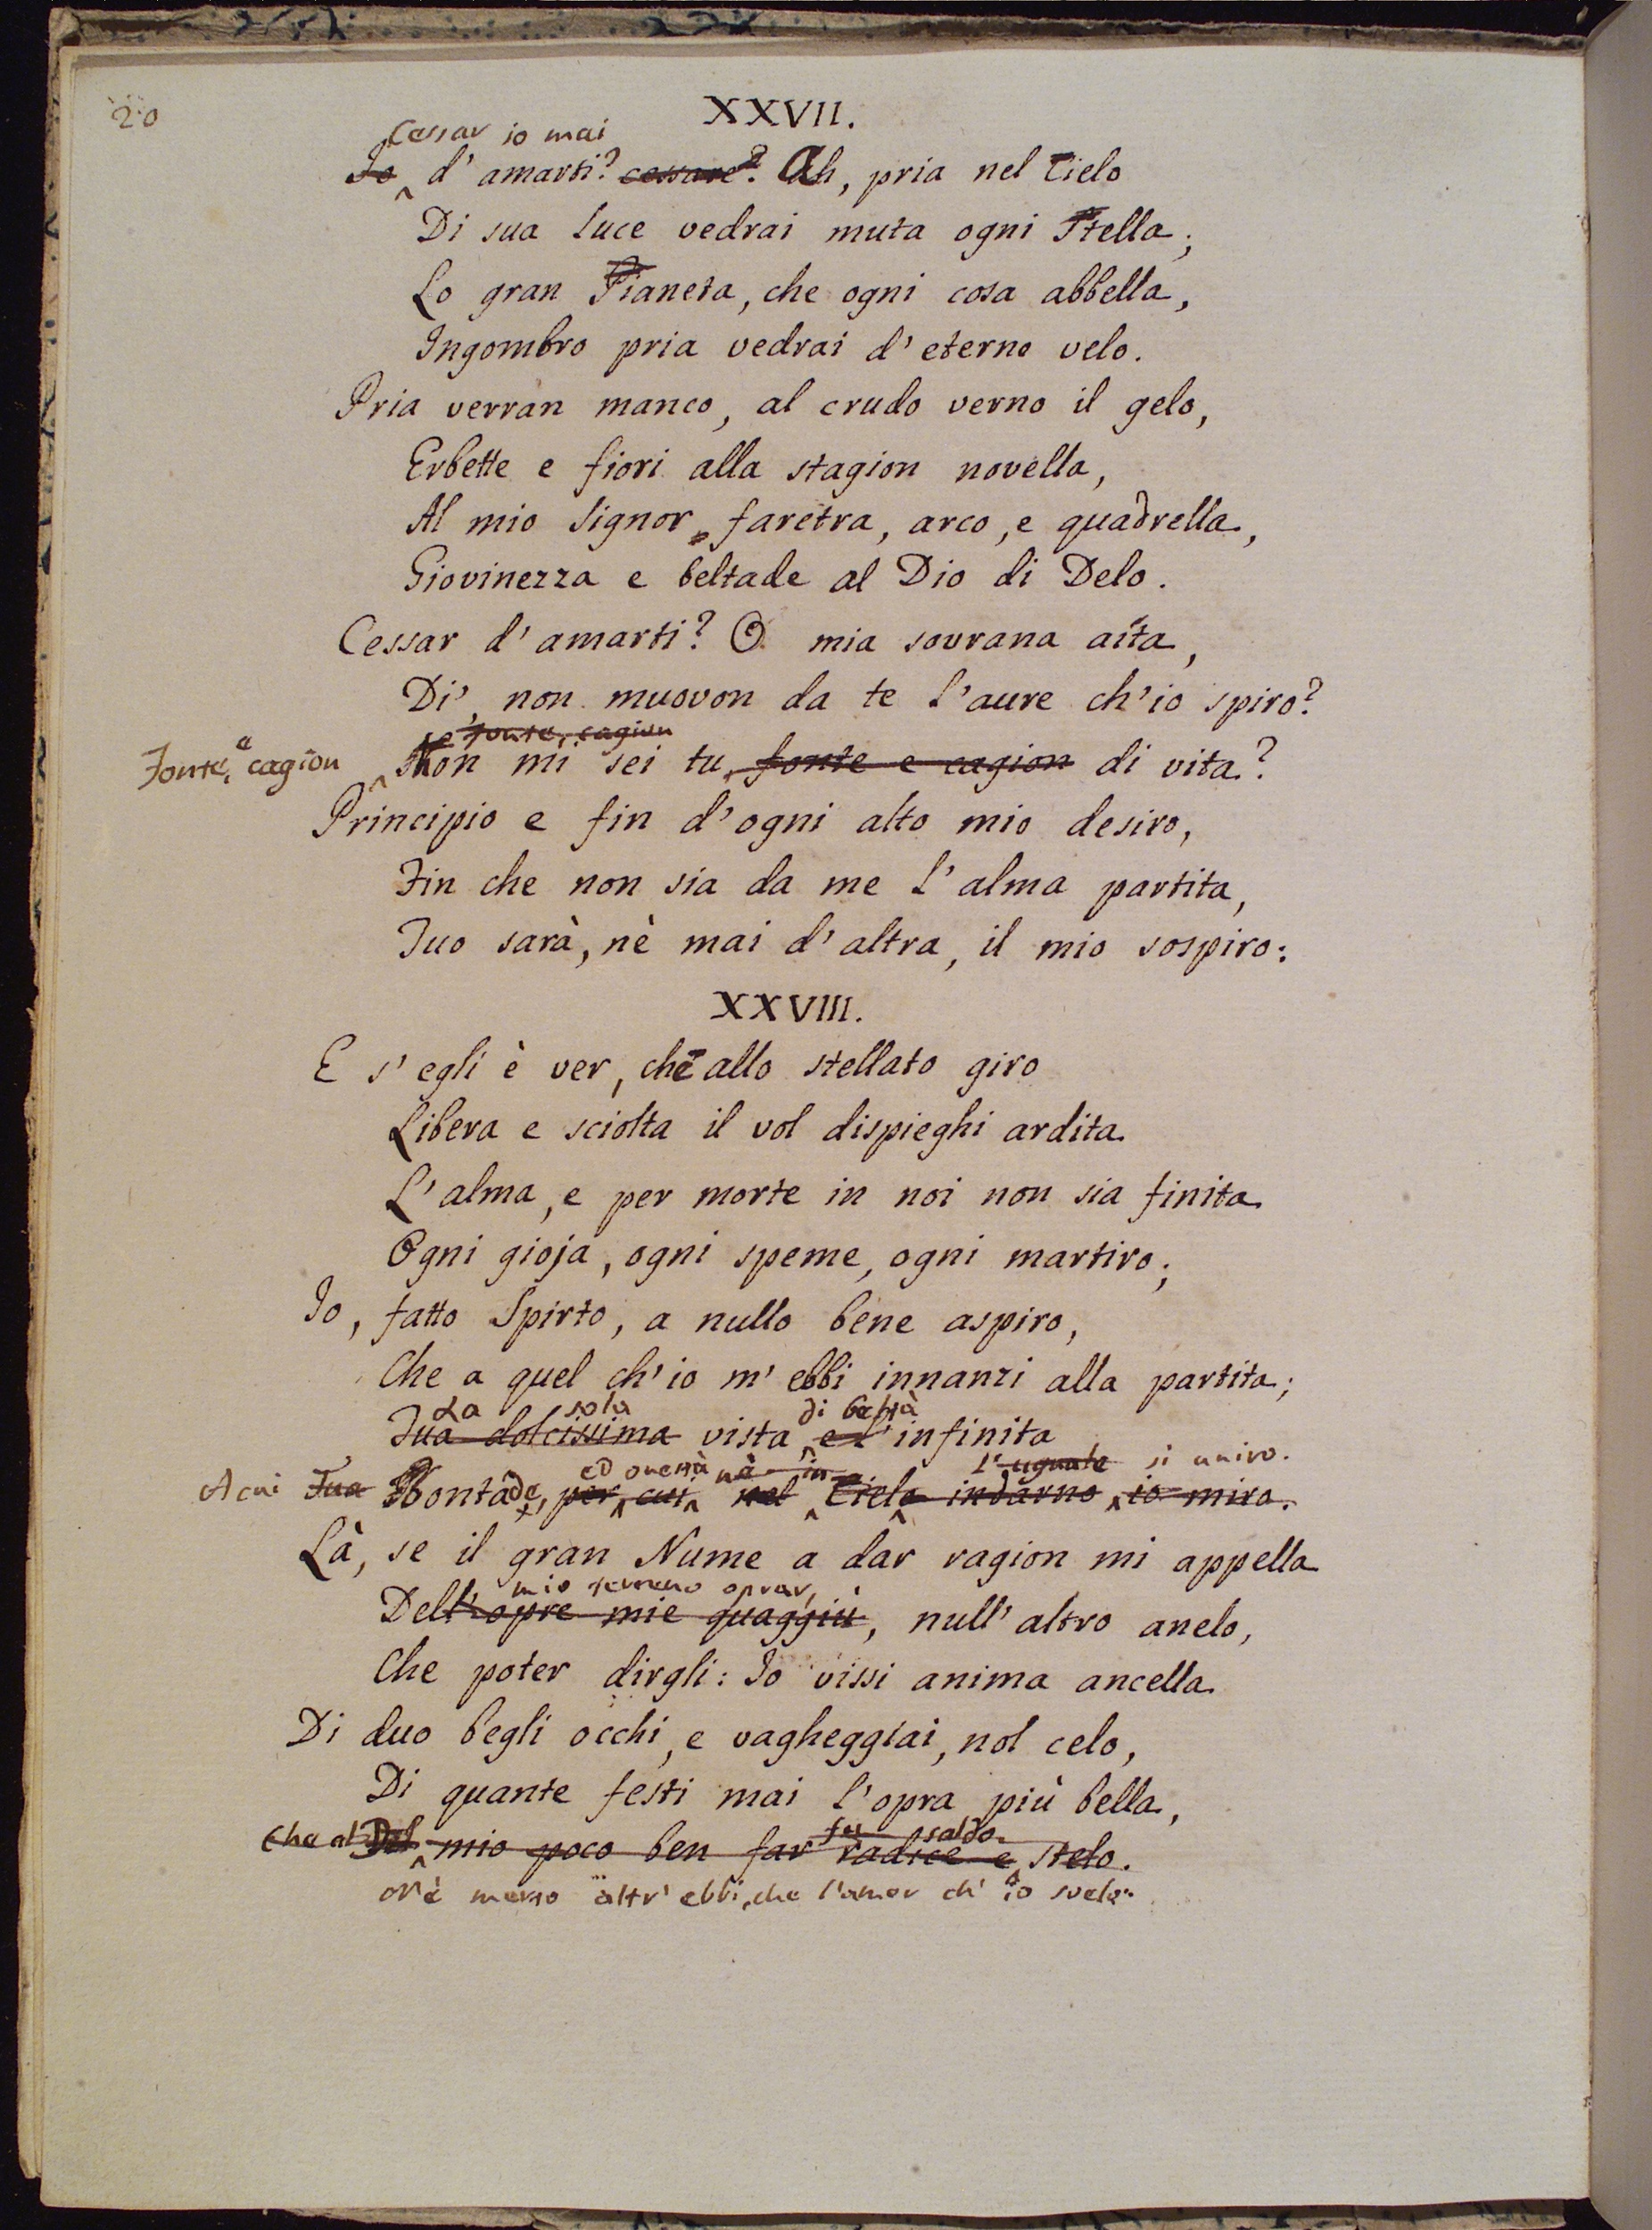 20
XXVII.
Cessar io mai
Io d' amarti? cessare? Ah, pria nel Cielo
Di sua luce vedrai muta ogni Stella;
Lo gran Pianeta, che ogni cosa abbella,
Ingombro pria vedrai d' eterno velo.
Pria verran manco, al crudo verno il gelo,
Erbette e fiori alla stagion novella,
Al mio Signor faretra, arco, e quadrella,
Giovinezza e beltade al Dio di Delo.
Cessar d' amarti? O mia sovrana aita,
Di', non muovon da te l'aure ch'io spiro?
se fonte, cagion
Fonte, e cagion Non mi sei tu, fonte e cagion di vita?
Principio e fin d' ogni alto mio desiro,
Fin che non sia da me l' alma partita,
Tuo sarà, nè mai d' altra, il mio sospiro:
XXVIII.
E s' egli è ver, che allo stellato giro
Libera e sciolta il vol dispieghi ardita
L' alma, e per morte in noi non sia finita
Ogni gioja, ogni speme, ogni martiro;
Io, fatto Spirto, a nullo bene aspiro,
Che a quel ch'io m' ebbi innanzi alla partita;
La sola di beltà
Tua dolcissima vista e l' infinita
ed onestà nè in l' uguale si uniro.
A cui Tua Bontade, per cui nel Cielo indarno io miro.
Là, se il gran Nume a dar ragion mi appella
mio terreno oprar,
Dell' opre mie quaggiù, null' altro anelo,
Che poter dirgli: Io vissi anima ancella
Di duo begli occhi, e vagheggiai, nol celo,
Di quante festi mai l' opra più bella,
fu saldo
Che al Del mio poco ben far radice e stelo.
Nè merto altr' ebbi, che l'amor ch' io svelo.